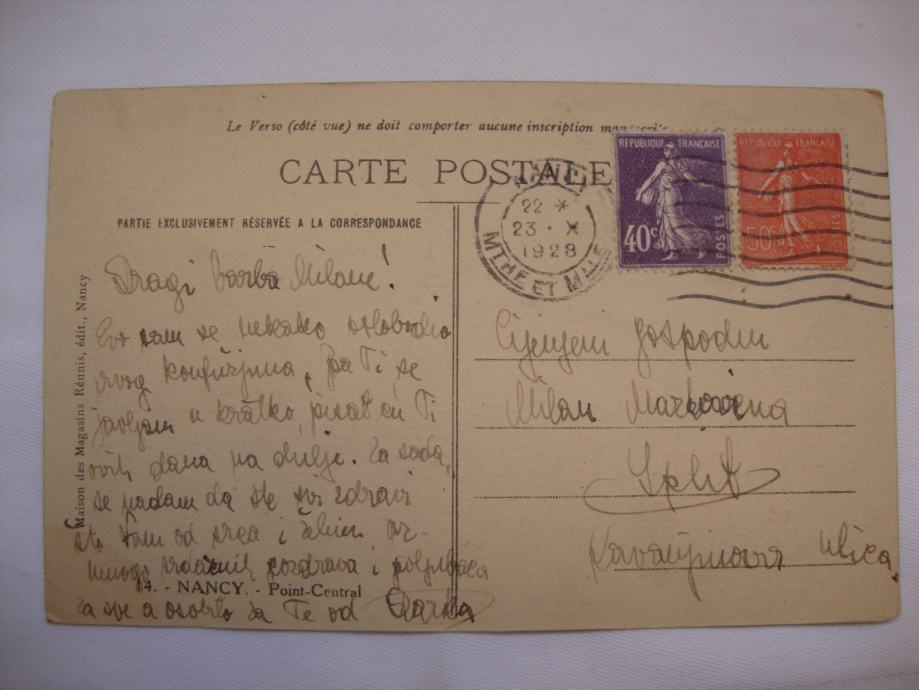 Le Verso (côté vue) ne doit comporter aucune inscription manuscrite
CARTE POSTALE
PARTIE EXCLUSIVEMENT RÉSERVÉE A LA CORRESPONDANCE
NANCY
22 *
23 . X
1928
MTHE ET MLLE
REPUBLIQUE FRANÇAISE
40c
POSTES
REPUBLIQUE FRANÇAISE
50c
POSTES
Maison des Magasins Réunis, édit., Nancy
Dragi barba Milane!
Evo sam se nekako oslobodio
ovog , pa Ti se
javljam u kratko, pisat ću Ti
ovih dana na dulje. Za sada,
se nadam da ste svi zdravi
što Vam od srca i želim uz
mnogo srdačnih pozdrava i poljubaca
za sve a osobito za Te od
14. - NANCY. - Point-Central
Cijenjeni Gospodin
Milan
Split
ulica